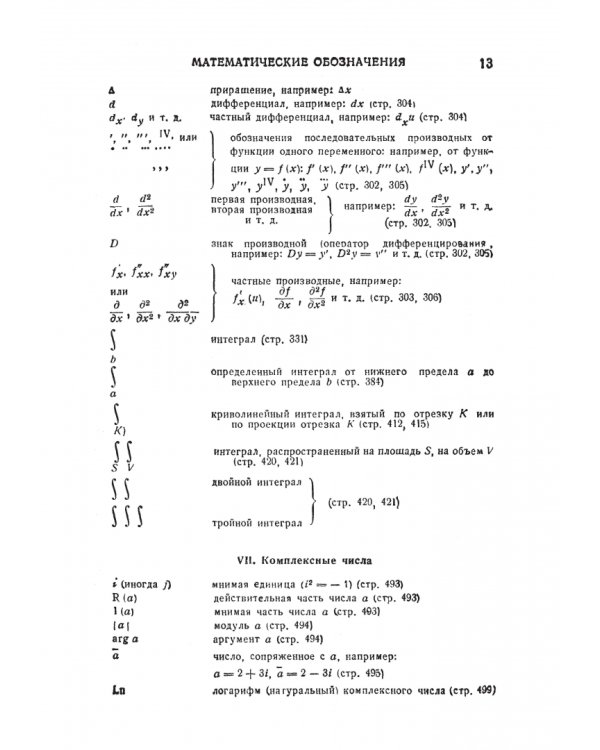 МАТЕМАТИЧЕСКИЕ ОБОЗНАЧЕНИЯ 13
Δ приращение, например: Δx
d дифференциал, например: dx (стр. 304)
dₓ, d_y и т. д. частный дифференциал, например: dₓu (стр. 304)
′, ″, ‴, IV, или обозначения последовательных производных от
. .. ... .... функции одного переменного: например, от функ-
, , , ции y = f (x): f′ (x), f″ (x), f‴ (x), f^IV (x), y′, y″,
y‴, y^IV, ẏ, ÿ, y⃛ (стр. 302, 305)
d/dx, d²/dx² первая производная, вторая производная и т. д. } например: dy/dx, d²y/dx² и т. д. (стр. 302, 305)
D знак производной (оператор дифференцирования,
например: Dy = y′, D²y = y″ и т. д. (стр. 302, 305)
f′ₓ, f″ₓₓ, f″ₓy частные производные, например:
или f′ₓ (u), ∂f/∂x, ∂²f/∂x² и т. д. (стр. 303, 306)
∂/∂x, ∂²/∂x², ∂²/∂x ∂y
∫ интеграл (стр. 331)
b
∫ определенный интеграл от нижнего предела a до
a верхнего предела b (стр. 384)
∫ криволинейный интеграл, взятый по отрезку K или
K) по проекции отрезка K (стр. 412, 415)
∫ ∫ интеграл, распространенный на площадь S, на объем V
S V (стр. 420, 421)
∫ ∫ двойной интеграл
(стр. 420, 421)
∫ ∫ ∫ тройной интеграл
VII. Комплексные числа
i (иногда j) мнимая единица (i² = — 1) (стр. 493)
R (a) действительная часть числа a (стр. 493)
I (a) мнимая часть числа a (стр. 493)
|a| модуль a (стр. 494)
arg a аргумент a (стр. 494)
ā число, сопряженное с a, например:
a = 2 + 3i, ā = 2 — 3i (стр. 495)
Ln логарифм (натуральный) комплексного числа (стр. 499)